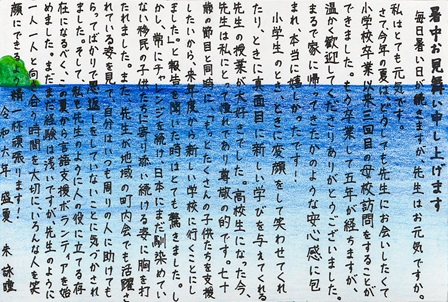 暑中お見舞い申し上げます
毎日暑い日が続きますが、先生はお元気ですか。
私はとても元気です。
さて今年の夏はどうしても先生にお会いしたくて
小学校卒業以来三回目の母校訪問をすることが
できました。もう卒業して五年が経ちますが、
温かく歓迎してくださりありがとうございました。
まるで家に帰ってきたかのような安心感に包
まれ本当に嬉かったです。
小学生のとき、ときに変顔をして笑わせてくれ
たり、ときに真面目に新しい学びを与えてくれる
先生の授業が大好きでした。高校生になった今、
先生は私にとって憧れであり尊敬の的です。七十
歳の節目と同時に「もっとたくさんの子供たちを支援
したいから、来年度から新しい学校に行くことにし
ました。」と報告を聞いた時はとても驚きました。し
かし、常にチャレンジを続け日本にまだ馴染めてい
ない移民の子供たちに寄り添い続ける姿に胸を打
たれました。また、先生が地域の町内会でも活躍さ
れている姿を見て、自分はいつも周りの人に助けても
らってばかりで恩返しをしていないことに気づかされ
ました。そして、私も先生のように人の役に立てる存
在になるべく、この夏から言語支援ボランティアを始
めました。まだまだ経験は浅いですが、先生のように
一人一人と向き合う時間を大切に、いろんな人を笑
顔にできるよう精一杯頑張ります！
令和六年 盛夏 朱 詠